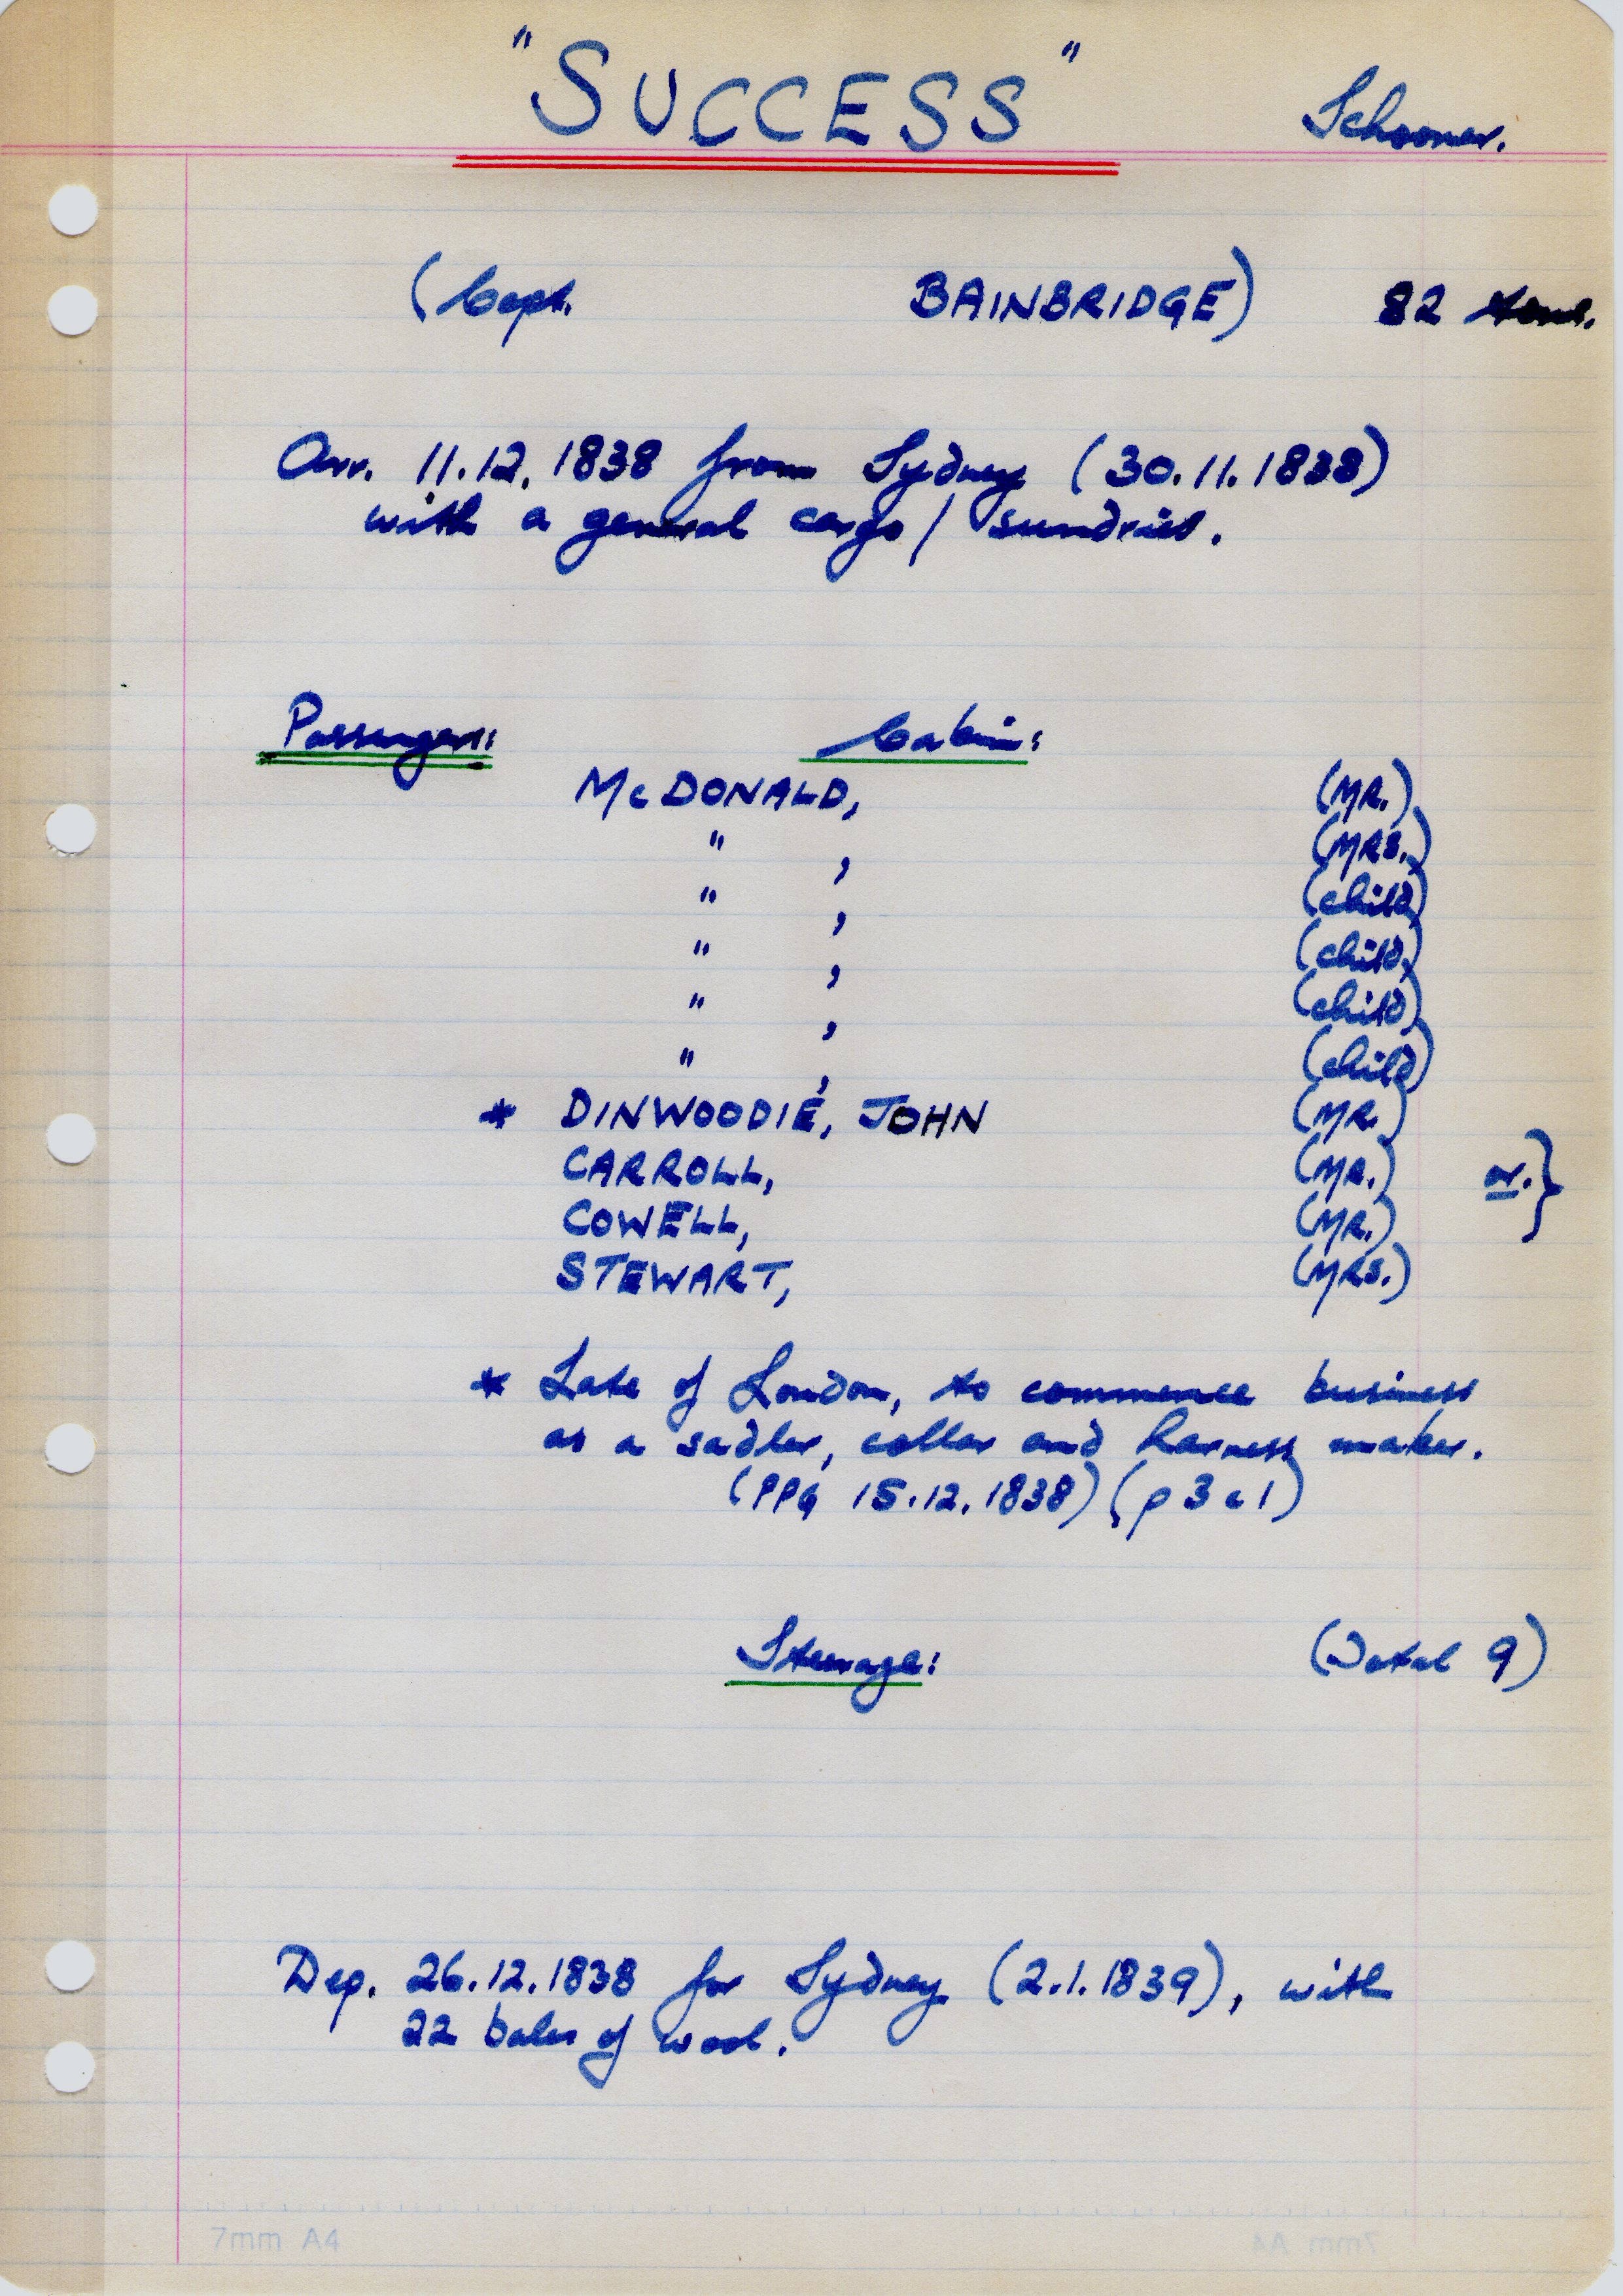 "SUCCESS" Schooner.
(Capt. BAINBRIDGE) 82 tons.
Arr. 11.12.1838 from Sydney (30.11.1838)
with a general cargo/sundries.
Passengers: Cabin:
McDONALD, (MR.)
" , (MRS.)
" , (child)
" , (child)
" , (child)
" , (child)
* DINWOODIE, JOHN (MR.)
CARROLL, (MR.) or.}
COWELL, (MR.)
STEWART, (MRS.)
* Late of London, to commence business
as a sadler, collar and harness maker.
(PPG 15.12.1838) (p3c1)
Steerage: (Total 9)
Dep. 26.12.1838 for Sydney (2.1.1839), with
22 bales of wool.
7mm A4
7mm A4